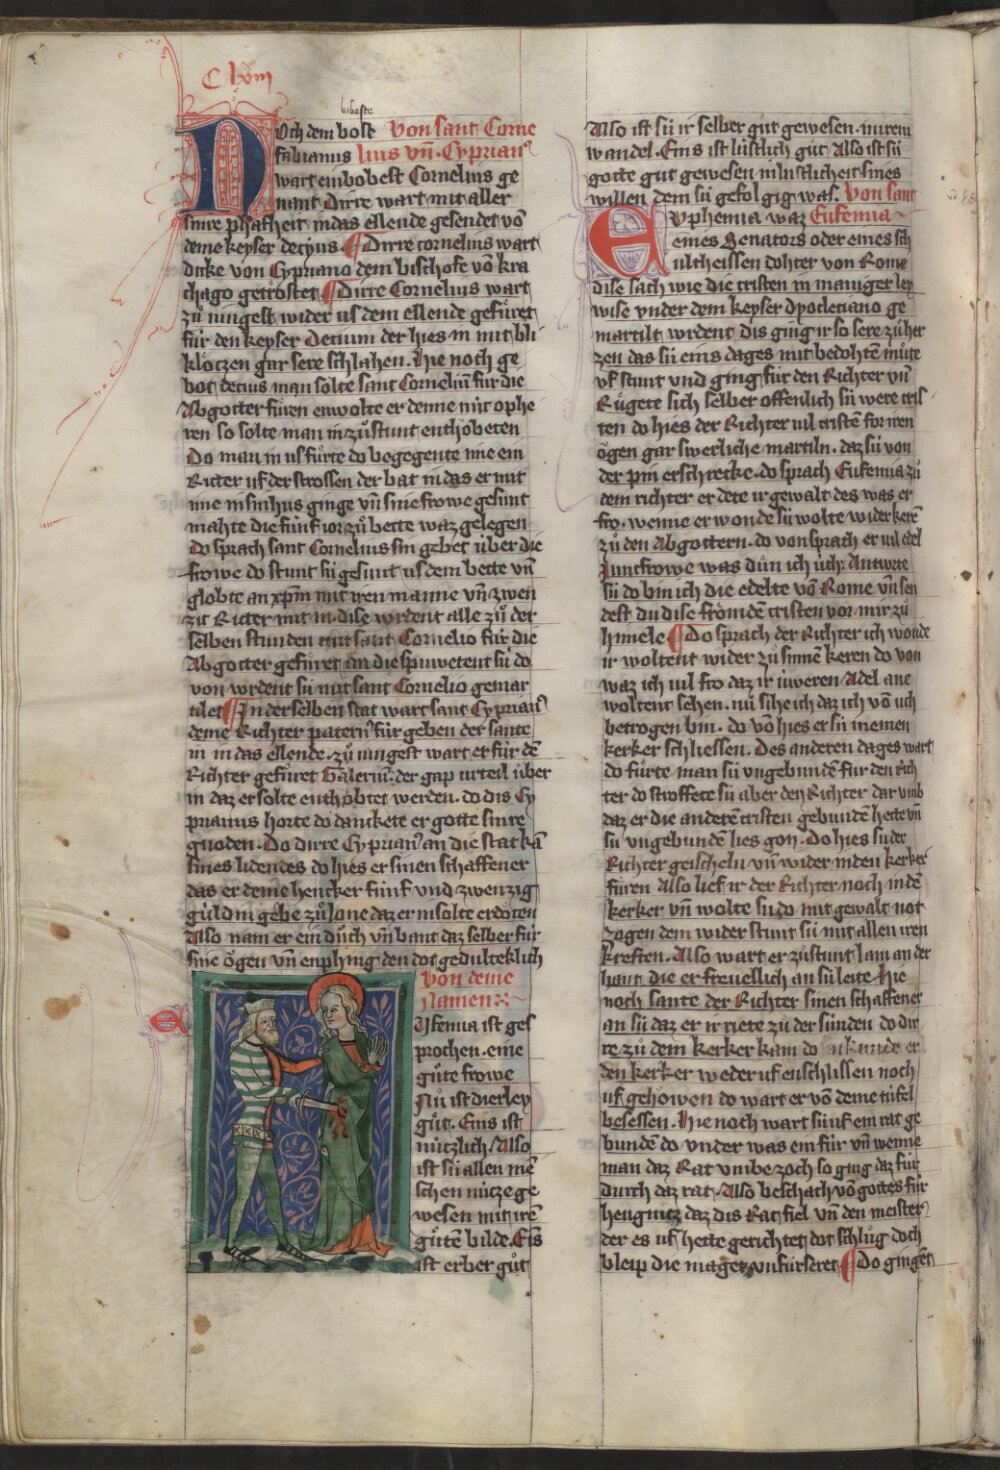 C lxviij
boboste
Noch dem bost Von sant Corne
fabianus lius vñ. Cyprian
wart ein bobest Cornelius ge
nant Dirre wart mit aller
sinre pfafheit in das ellende gesendet vō
deme keyser decyus. Dirre cornelius wart
dicke von Cypriano dem bischofe vō kra
thago getröstet Dirre Cornelius wart
zů iungest wider us dem ellende gefůret
für den keyser Decium der hies in mit bli
klötzen gar sere schlahen. Hie noch ge
bot decius man solte sant Corneliū für die
Abgötter fůren enwolte er denne nüt ophe
ren so solte man in zů stunt enthobeten
Do man in us fůrte do begegente ime ein
Ritter uf der strossen der bat in das er mit
ime in sin hus ginge vñ sine frowe gesunt
mahte die fünf ior zů bette waz gelegen
Do sprach sant Cornelius sin gebet über die
frowe do stunt sü gesunt us dem bette vñ
globte an xpm mit iren manne vñ zwen
zig Ritter mit in dise wrdent alle zů der
selben stunden mit sant Cornelio für die
Abgötter gefůret an die spuwetent sü do
von wrdent sü mit sant Cornelio gemar
tilet In der selben stat wart sant Cyprian
deme Richter patern für geben der sante
in in das ellende. zů iungest wart er für dē
Richter gefůret Galeriū. der gap urteil über
in daz er solte enthöbtet werden. do dis Cy
prianus horte do danckete er gotte sinre
gnoden. Do dirre Cyprian an die stat kā
sines lidendes do hies er sinen schaffener
das er deme hencker fünf vnd zwenzig
guldin gebe zů lone daz er in solte erdöten
Also nam er ein důch vñ bant daz selber für
sine ögen vñ enphing den dot gedulteklich
Von deme
Namen
e
Ufemia ist ges
prochen. eine
gůte frowe
Nu ist drierley
gůt. Eins ist
nützlich / Also
ist sü allen mē
schen nütze ge
wesen mit irē
gůtē bilde. Eis
ist erber gůt
Also ist sü ir selber gůt gewesen. in irem
wandel. Eins ist lüstlich gůt Also ist sü
gotte gůt gewesen in lustlicheit sines
willen dem sü gefölgig was. Von sant
Euphemia waz Eufemia
eines Senators oder eines sch
ultheissen dohter von Rome
dise sach wie die cristen in maniger ley
wise vnder dem keyser dyocleciano ge
martilt wrdent dis ging ir so sere zů her
zen das sü eins dages mit bedohtē můte
vf stunt vnd ging für den Richter vñ
Růgete sich selber offenlich sü were cris
ten do hies der Richter vil cristē for iren
ögen gar swerliche martiln. daz sü von
der pin erschrecke. do sprach Eufemia zů
dem richter er dete ir gewalt des was er
fro. wenne er wonde sü wolte wider kerē
zů den Abgöttern. do von sprach er vil edel
Juncfrowe was důn ich üch: Antwrte
sü do bin ich die edelte vō Rome vñ sen
dest du dise frömdē cristen vor mir zů
himele Do sprach der Richter ich wonde
ir woltent wider zů sinnē keren do von
waz ich vil fro daz ir üweren Adel ane
woltent sehen. nů sihe ich daz ich vō üch
betrogen bin. do vō hies er sü in einen
kerker schliessen. Des anderen dages wart
do fůrte man sü vngebundē für den rich
ter do stroffete sü aber den Richter dar vmb
daz er die anderē cristen gebundē hette vñ
sü vngebundē lies gon. Do hies sü der
Richter geischeln vñ wider in den kerker
fůren Also lief ir der Richter noch in dē
kerker vñ wolte sü do mit gewalt not
zogen dem wider stunt sü mit allen iren
kreften. Also wart er zů stunt lam an der
hant die er freuellich an sü leite Hie
noch sante der Richter sinen schaffener
an sü daz er ir riete zů der sünden do dir
re zů dem kerker kam do enkunde er
den kerker weder uf enschlissen noch
uf gehöwen do wart er vō deme tüfel
besessen. Hie noch wart sü uf ein rat ge
bundē do vnder was ein für vñ wenne
man daz Rat vmbe zoch so ging daz für
durch daz rat. Also beschach vō gottes für
hengnitz daz dis Rat fiel vñ den meister
der es uf hette gerichtet dot schlůg doch
bleip die maget vnfürseret Do gingēt